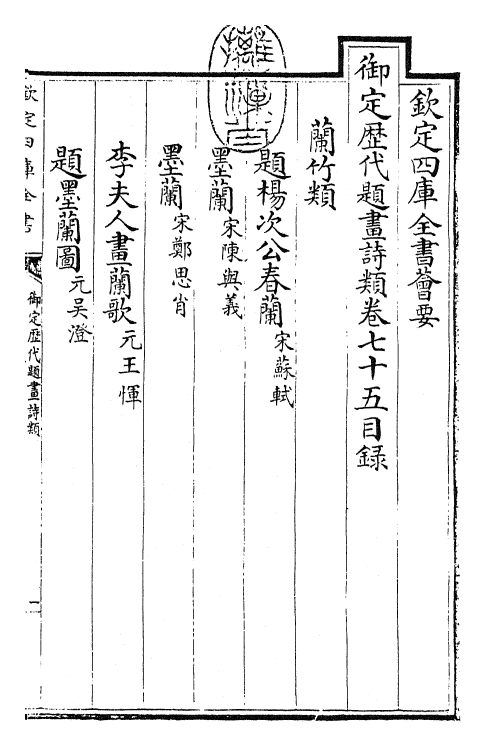 欽定四庫全書薈要
御定歴代題畫詩類卷七十五目録
蘭竹類
題楊次公春蘭 宋蘇軾
墨蘭 宋陳與義
墨蘭 宋鄭思肖
李夫人畫蘭歌 元王惲
題墨蘭圖 元吴澄
欽定四庫全書
御定歴代題畫詩類
一